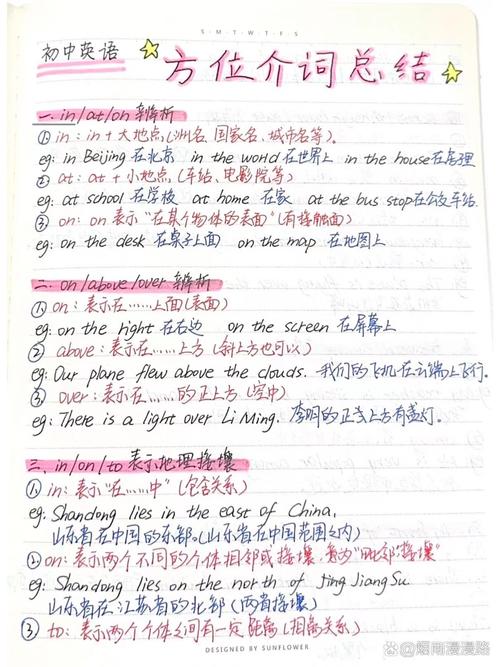 S M T W T F S
初中英语
方位介词总结
一. in/at/on 辨析
① in: in + 大地点(洲名、国家名、城市名等)。
eg: in Beijing 在北京 in the world 在世界上 in the house 在房里
② at: at + 小地点(车站、电影院等)
eg: at school 在学校 at home 在家 at the bus stop 在公交车站.
③ on: on 表示“在某个物体的表面”(有接触面)
eg: on the desk 在桌子上面 on the map 在地图上
二. on/above/over 辨析
① on: 表示在……上面(表面)
eg: on the right 在右边 on the screen 在屏幕上
② above: 表示在……上方(斜上方也可以)
eg: Our plane flew above the clouds. 我们的飞机在云端上飞行.
③ over: 表示在……的正上方(空中)
eg: There is a light over Li Ming. 李明的正上方有盏灯.
三. in/on/to 表示地理接壤
① in: 表示“在……中”(包含关系)
eg: Shandong lies in the east of China.
山东省在中国的东部.(山东省在中国范围之内)
② on: 表示两个不同的个体相邻或接壤, “毗邻”“接壤”
eg: Shandong lies on the north of Jing Jiang Su
山东省在江苏省的北部(两省接壤)
③ to: 表示两个个体之间有一定距离(相离关系)
DESIGNED BY SUNFLOWER
@烟雨漫漫路